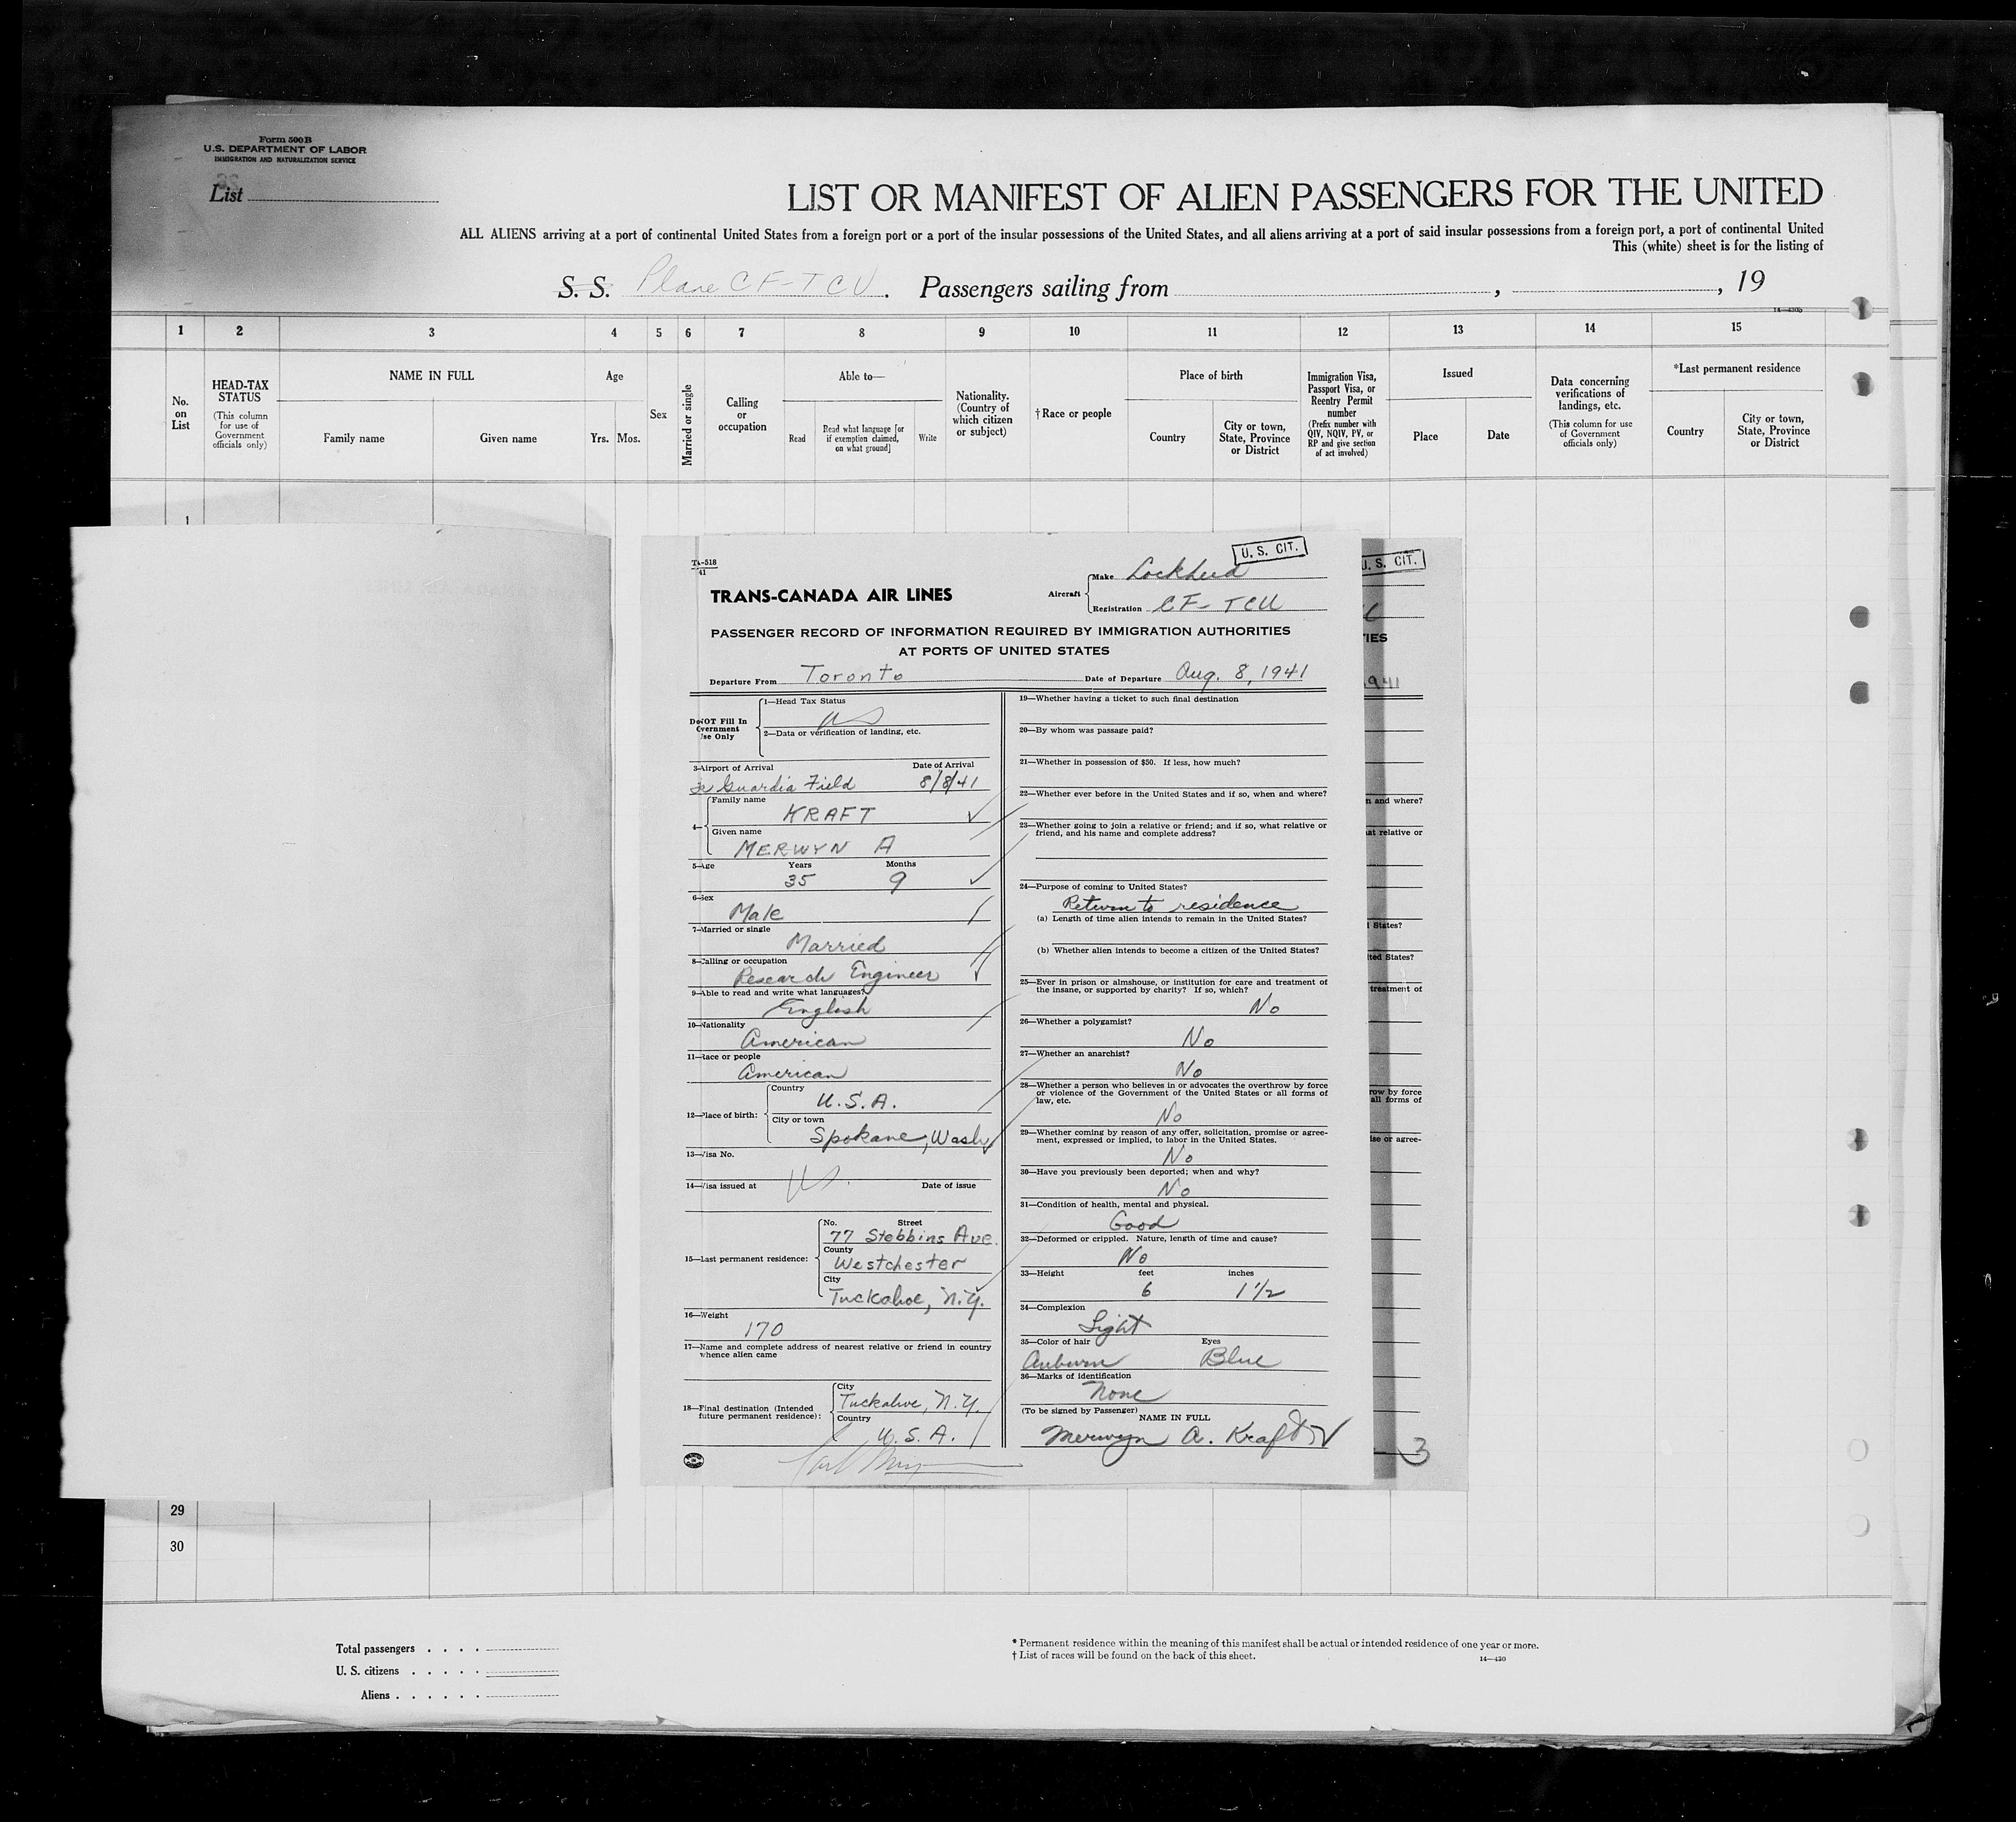 Form 500B
U.S. DEPARTMENT OF LABOR
IMMIGRATION AND NATURALIZATION SERVICE
List
LIST OR MANIFEST OF ALIEN PASSENGERS FOR THE UNITED
ALL ALIENS arriving at a port of continental United States from a foreign port or a port of the insular possessions of the United States, and all aliens arriving at a port of said insular possessions from a foreign port, a port of continental United
This (white) sheet is for the listing of
S. S. Plane CF-TCU. Passengers sailing from , , 19
14—430b
1 2 3 4 5 6 7 8 9 10 11 12 13 14 15
No. on List
HEAD-TAX STATUS
(This column for use of Government officials only)
NAME IN FULL
Family name Given name
Age
Yrs. Mos.
Sex
Married or single
Calling or occupation
Able to—
Read
Read what language [or if exemption claimed, on what ground]
Write
Nationality. (Country of which citizen or subject)
†Race or people
Place of birth
Country
City or town, State, Province or District
Immigration Visa, Passport Visa, or Reentry Permit number
(Prefix number with QIV, NQIV, PV, or RP and give section of act involved)
Issued
Place Date
Data concerning verifications of landings, etc.
(This column for use of Government officials only)
*Last permanent residence
Country
City or town, State, Province or District
1
U. S. CIT.
41
TRANS-CANADA AIR LINES
Aircraft
Make Lockheed
Registration CF-TCU
PASSENGER RECORD OF INFORMATION REQUIRED BY IMMIGRATION AUTHORITIES
AT PORTS OF UNITED STATES
Departure From Toronto Date of Departure Aug. 8, 1941
1—Head Tax Status
US
2—Data or verification of landing, etc.
3—Airport of Arrival Date of Arrival
La Guardia Field 8/8/41
4—
Family name
KRAFT
Given name
MERWYN A
5—Age Years Months
35 9
6—Sex
Male
7—Married or single
Married
8—Calling or occupation
Research Engineer
9—Able to read and write what languages?
English
10—Nationality
American
11—Race or people
American
12—Place of birth:
Country
U.S.A.
City or town
Spokane, Wash
13—Visa No.
US.
14—Visa issued at Date of issue
15—Last permanent residence:
No. Street
77 Stebbins Ave.
County
Westchester
City
Tuckahoe, N.Y.
16—Weight
170
17—Name and complete address of nearest relative or friend in country
whence alien came
18—Final destination (Intended
future permanent residence):
City
Tuckahoe, N.Y.
Country
U. S. A.
19—Whether having a ticket to such final destination
20—By whom was passage paid?
21—Whether in possession of $50. If less, how much?
22—Whether ever before in the United States and if so, when and where?
23—Whether going to join a relative or friend; and if so, what relative or
friend, and his name and complete address?
24—Purpose of coming to United States?
Return to residence
(a) Length of time alien intends to remain in the United States?
(b) Whether alien intends to become a citizen of the United States?
25—Ever in prison or almshouse, or institution for care and treatment of
the insane, or supported by charity? If so, which?
No
26—Whether a polygamist?
No
27—Whether an anarchist?
No
28—Whether a person who believes in or advocates the overthrow by force
or violence of the Government of the United States or all forms of
law, etc.
No
29—Whether coming by reason of any offer, solicitation, promise or agree-
ment, expressed or implied, to labor in the United States.
No
30—Have you previously been deported; when and why?
No
31—Condition of health, mental and physical.
Good
32—Deformed or crippled. Nature, length of time and cause?
No
33—Height feet inches
6 1 1/2
34—Complexion
Light
35—Color of hair Eyes
Auburn Blue
36—Marks of identification
None
(To be signed by Passenger)
NAME IN FULL
Merwyn A. Kraft
U. S. CIT.
IES
1941
n and where?
at relative or
States?
ted States?
treatment of
row by force
all forms of
ise or agree-
3
29
30
Total passengers . . . .
U. S. citizens . . . . .
Aliens . . . . . .
* Permanent residence within the meaning of this manifest shall be actual or intended residence of one year or more.
† List of races will be found on the back of this sheet.
14—430